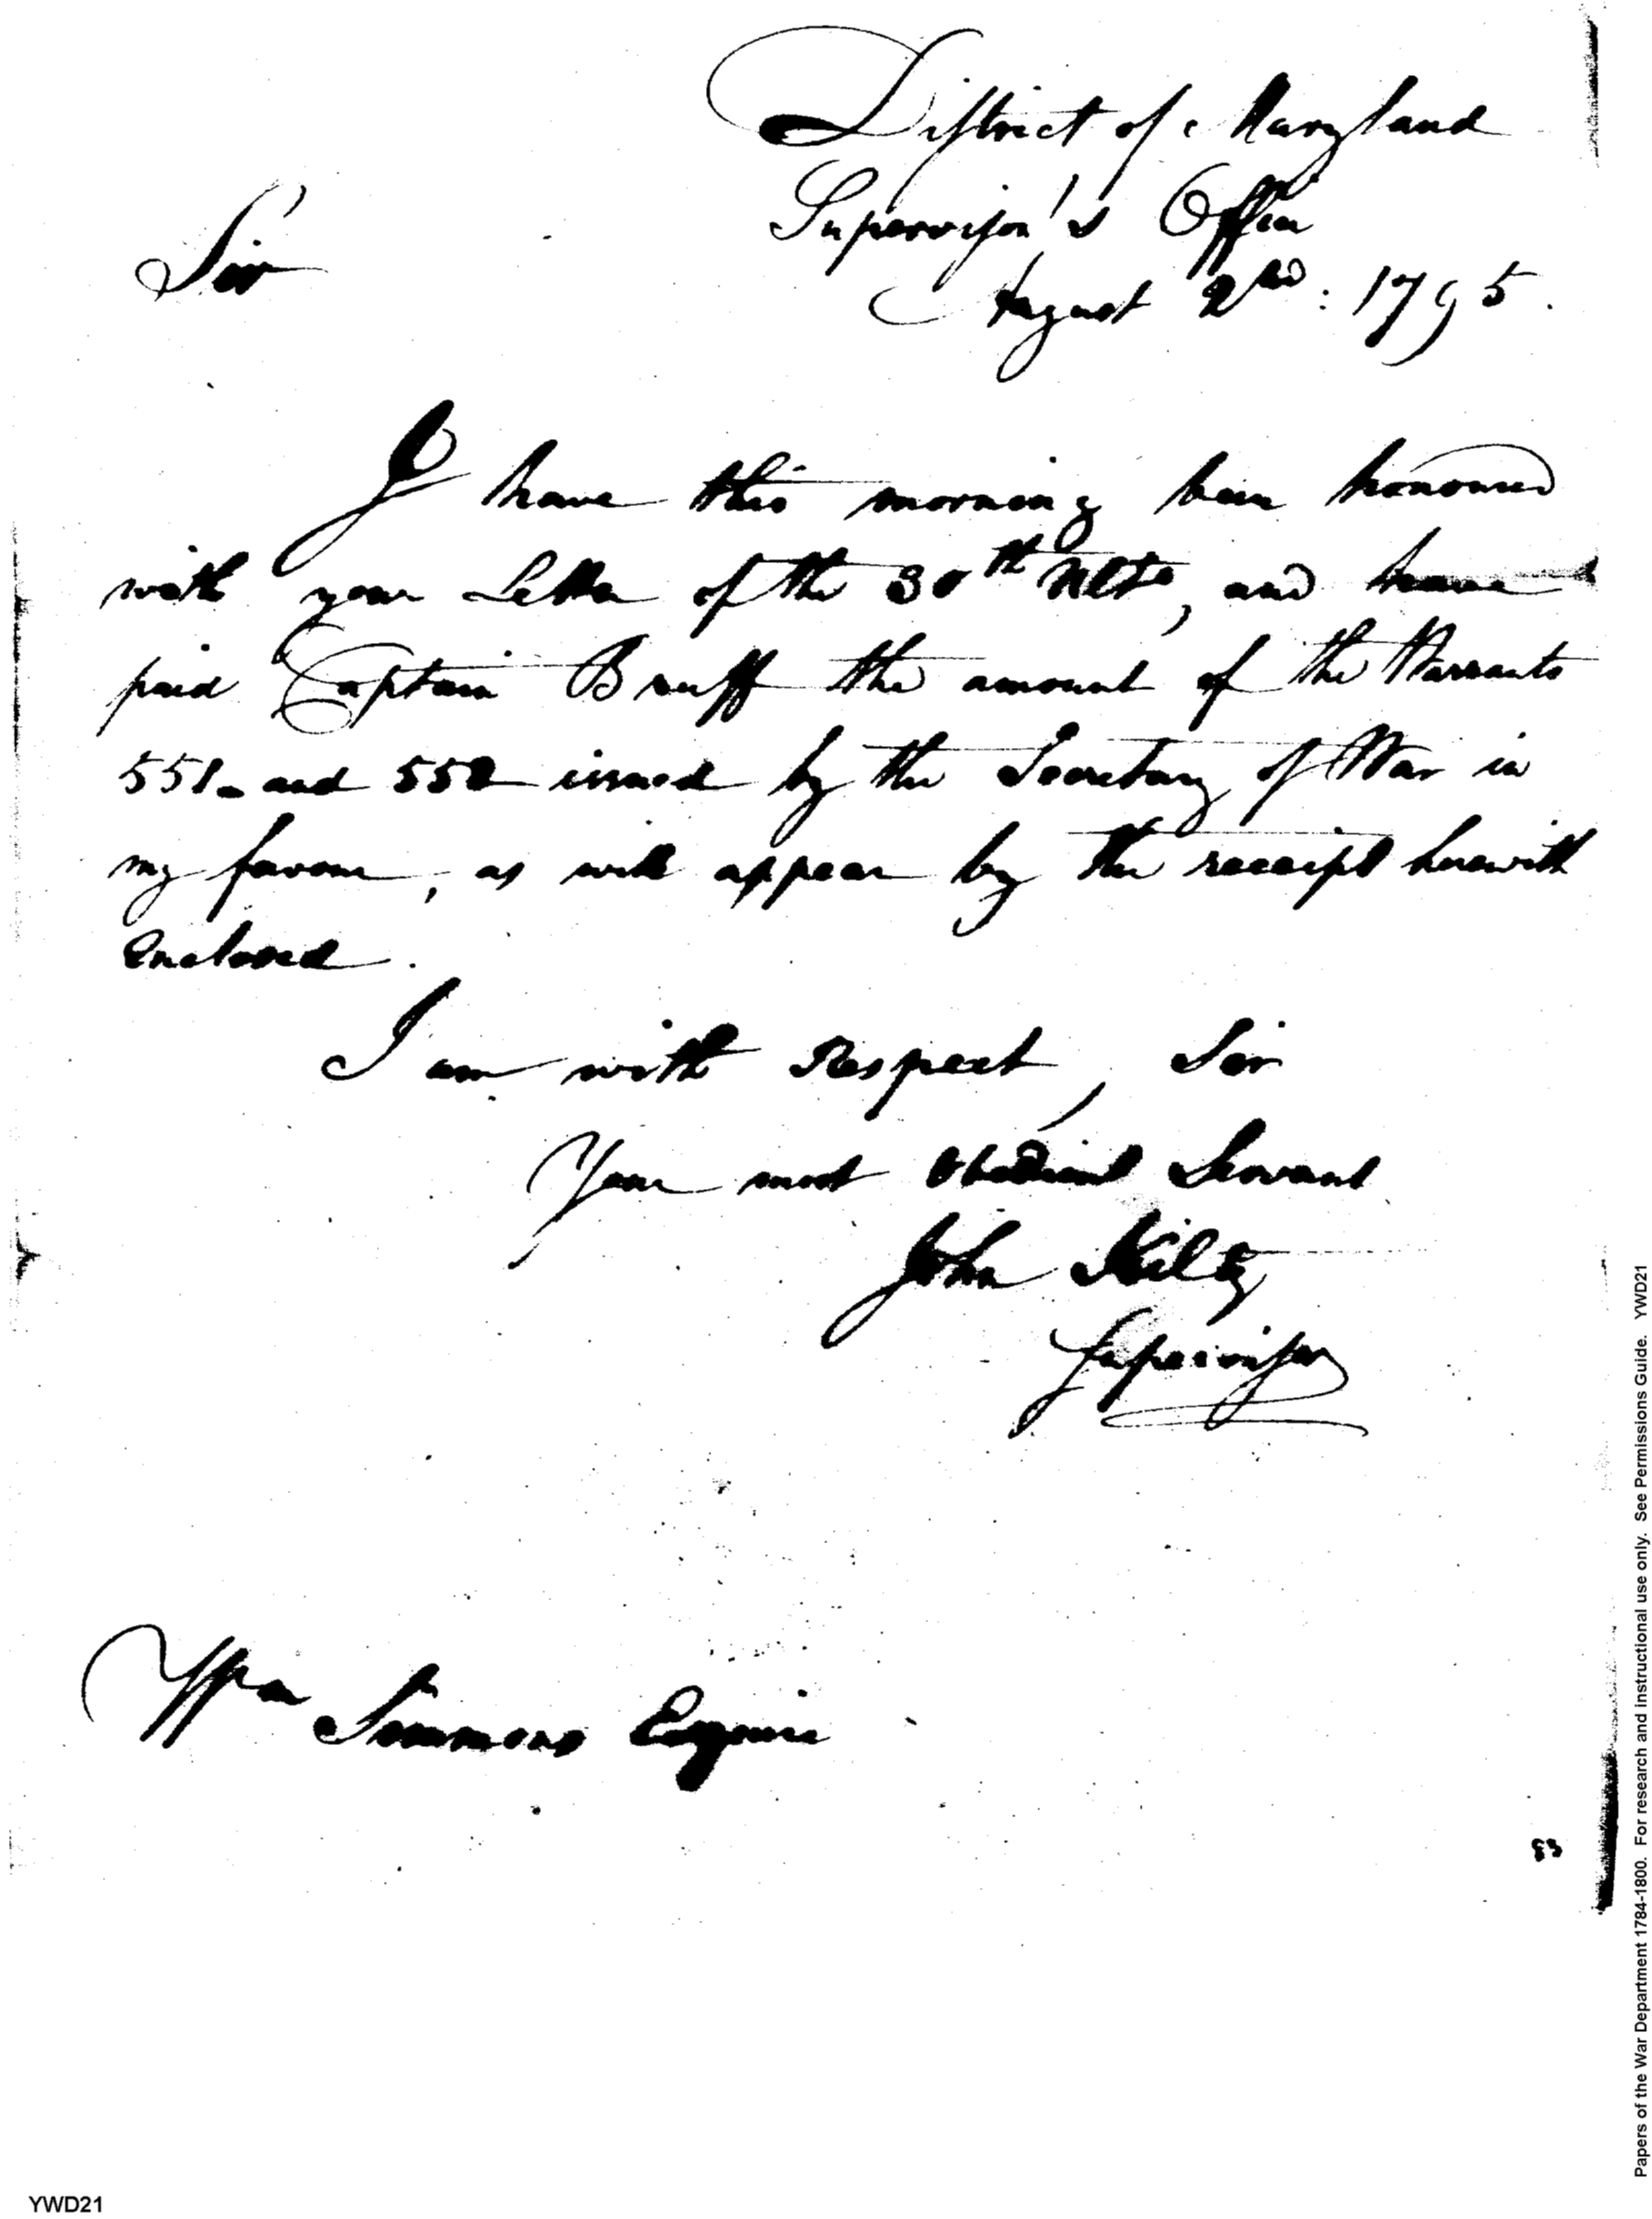 District of Maryland
Supervisor's Office
August 2nd: 1795.
Sir
I have this morning been honoured
with your Letter of the 30th Ulto, and have
paid Captain Bruff the amount of the Warrants
551. and 552 issued by the Secretary of War in
my favour, as will appear by the receipt herewith
Enclosed.
I am with Respect, Sir
Your most Obedient Servant
John Kilty
Supervisor
Wm Simmons Esquire
83
Papers of the War Department 1784-1800. For research and instructional use only. See Permissions Guide. YWD21
YWD21